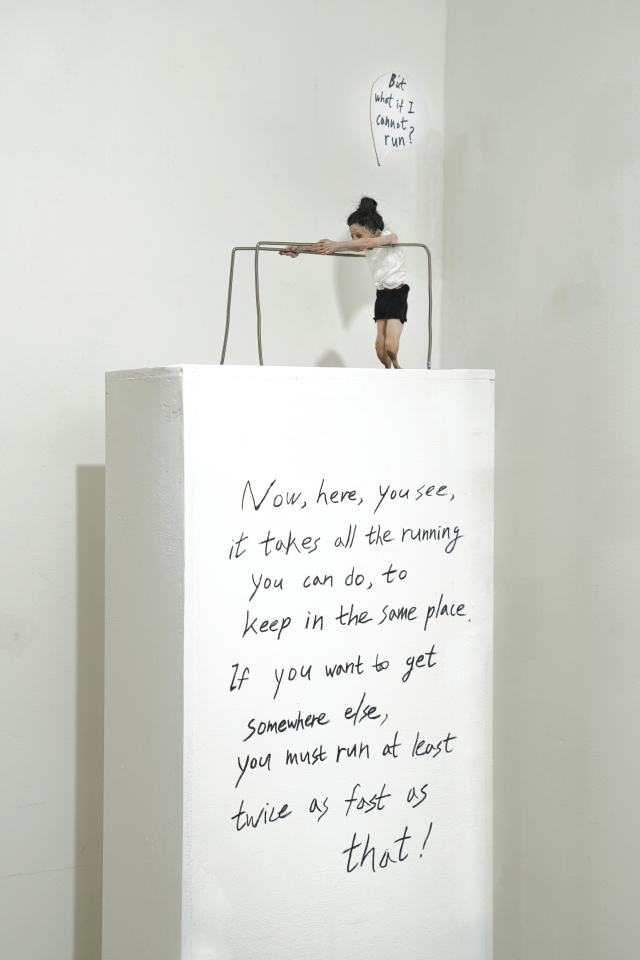 But
what if I
cannot
run?
Now, here, you see,
it takes all the running
you can do, to
keep in the same place.
If you want to get
somewhere else,
you must run at least
twice as fast as
that!